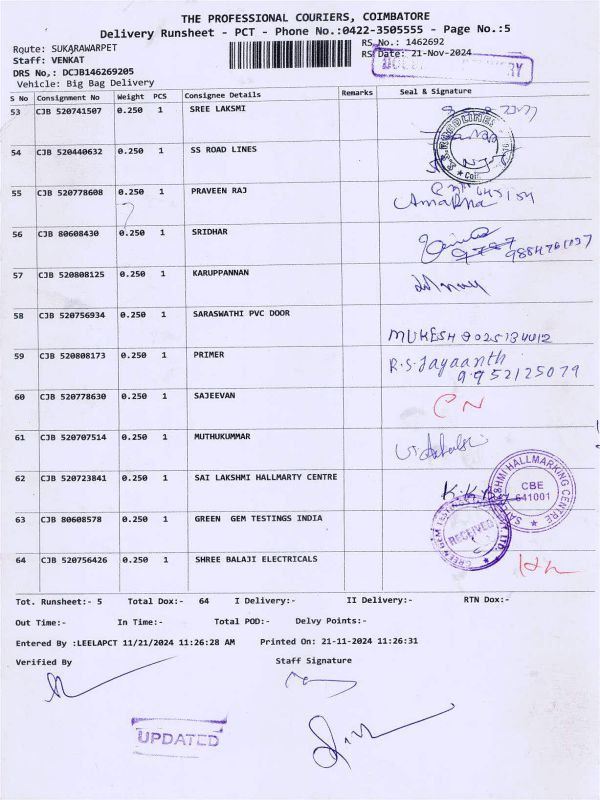 THE PROFESSIONAL COURIERS, COIMBATORE
Delivery Runsheet - PCT - Phone No.:0422-3505555 - Page No.:5
Route: SUKARAWARPET RS No.: 1462692
Staff: VENKAT RS Date: 21-Nov-2024
DRS No,: DCJB146269205
Vehicle: Big Bag Delivery
S No Consignment No Weight PCS Consignee Details Remarks Seal & Signature
53 CJB 520741507 0.250 1 SREE LAKSMI
54 CJB 520440632 0.250 1 SS ROAD LINES
55 CJB 520778608 0.250 1 PRAVEEN RAJ
56 CJB 80608430 0.250 1 SRIDHAR
57 CJB 520808125 0.250 1 KARUPPANNAN
58 CJB 520756934 0.250 1 SARASWATHI PVC DOOR
MUKESH
59 CJB 520808173 0.250 1 PRIMER R.S.Jayaanth
9952125079
60 CJB 520778630 0.250 1 SAJEEVAN
61 CJB 520707514 0.250 1 MUTHUKUMMAR
62 CJB 520723841 0.250 1 SAI LAKSHMI HALLMARTY CENTRE
CBE
641001
63 CJB 80608578 0.250 1 GREEN GEM TESTINGS INDIA
RECEIVED
64 CJB 520756426 0.250 1 SHREE BALAJI ELECTRICALS
Tot. Runsheet:- 5 Total Dox:- 64 I Delivery:- II Delivery:- RTN Dox:-
Out Time:- In Time:- Total POD:- Delvy Points:-
Entered By :LEELAPCT 11/21/2024 11:26:28 AM Printed On: 21-11-2024 11:26:31
Verified By Staff Signature
UPDATED